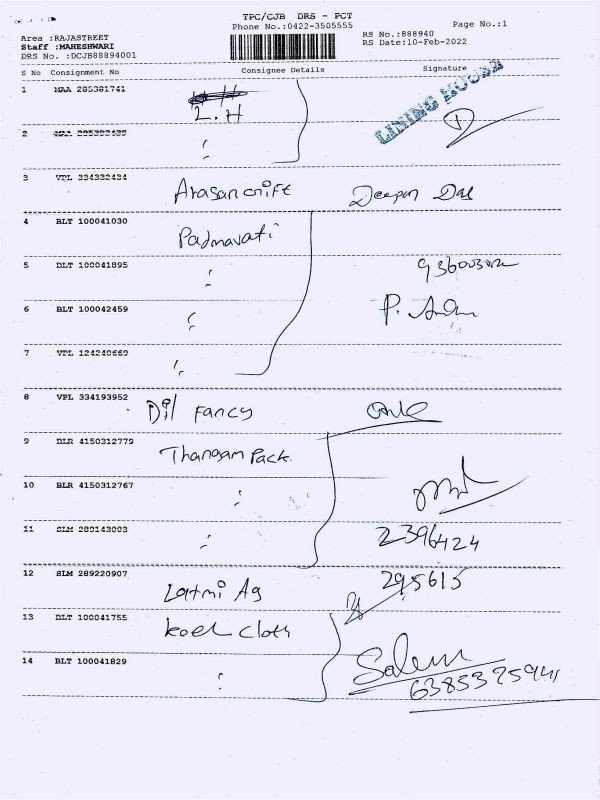 TPC/CJB DRS - PCT
Phone No.:0422-3505555
Page No.:1
Area :RAJASTREET
Staff :MAHESHWARI
DRS No. :DCJB88894001
RS No.:888940
RS Date:10-Feb-2022
S No Consignment No Consignee Details Signature
1 MAA 285381741 L.H
LINING HOUSE
2
3 VPL 334332434 Arasan crift Deepan Das
4 BLT 100041030 Padmavati
5 BLT 100041895
6 BLT 100042459
7 VPL 124240669
8 VPL 334193952 Dil Fancy
9 BLR 4150312779 Thangam Pack
10 BLR 4150312767
11 SLM 289143003 2396424
12 SLM 289220907 Laxmi Ag 295615
13 BLT 100041755 Koel cloth
14 BLT 100041829 Salem